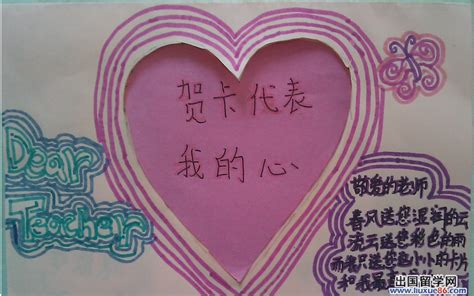 贺卡代表
我的心
Dear
Teacher
敬爱的老师
春风送您湿润的云
流云送您彩色的雨
而我只送您小小的卡片
和我最
出国留学网
www.liuxue86.com